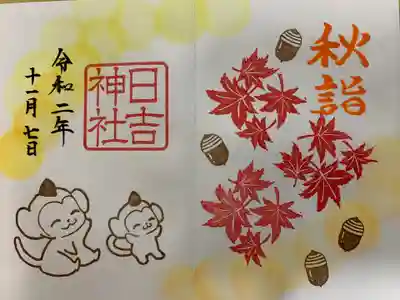 秋詣
日吉
神社
令和二年
十一月七日